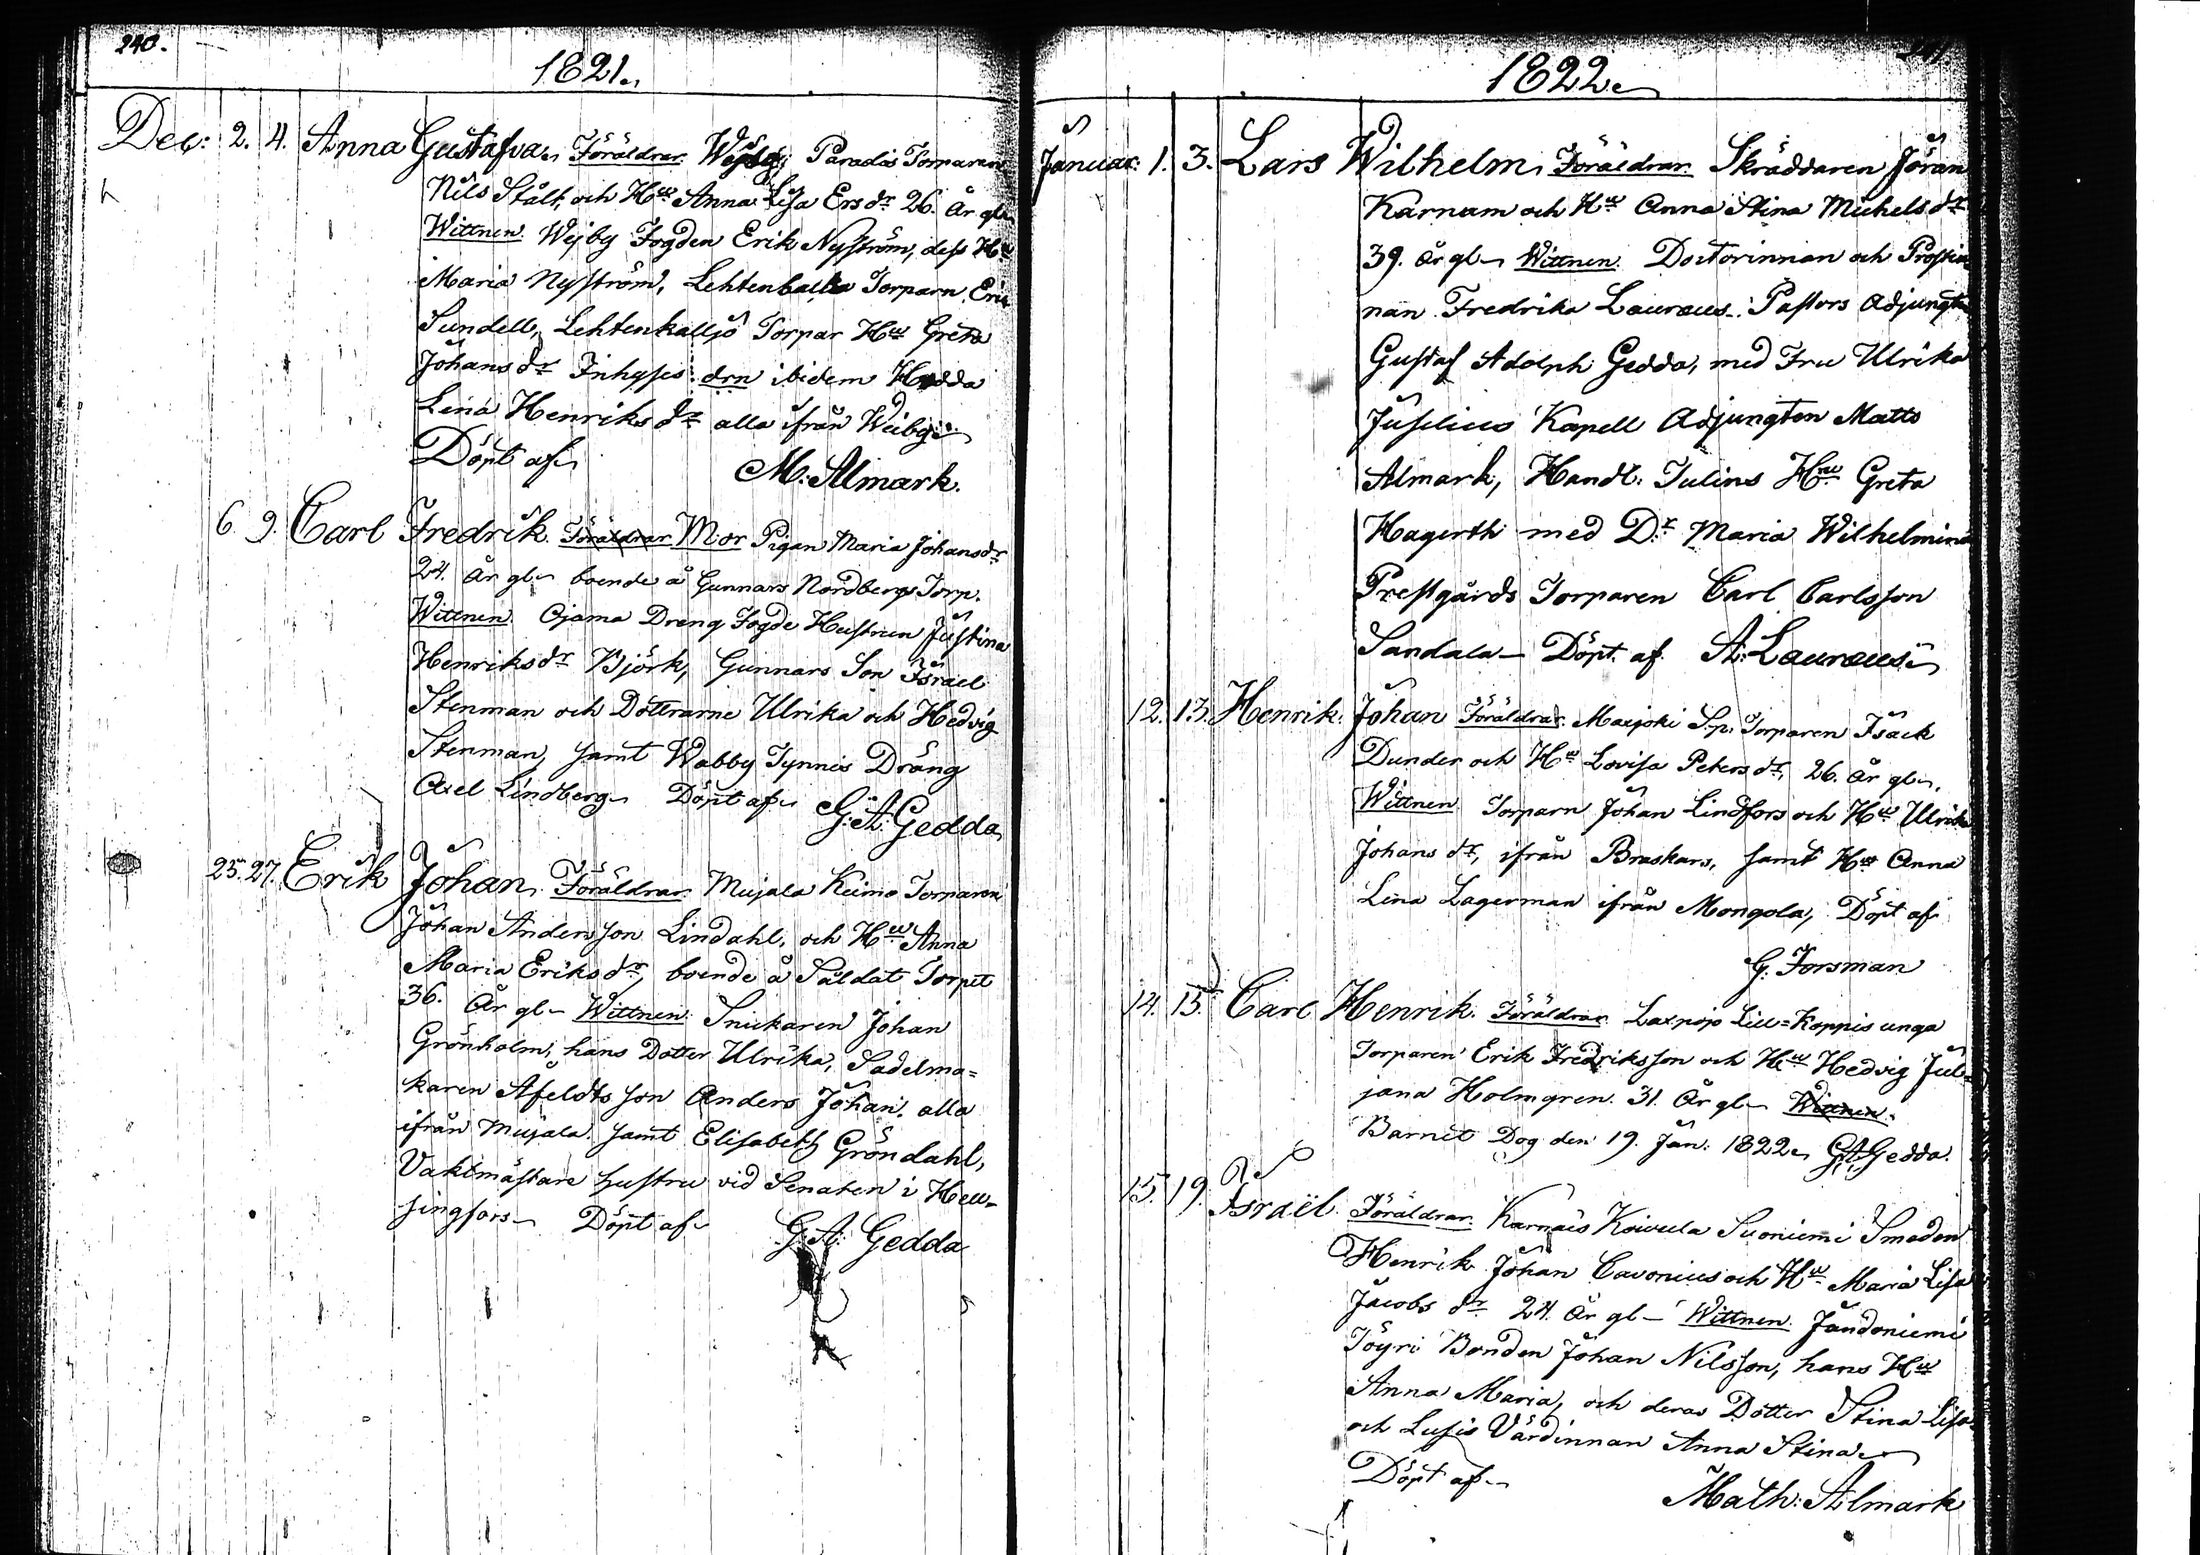 240.
1821.
Dec: 2. 4. Anna Gustafva. Föräldrar Paradis Torparen
Nils Stålt, och Hu Anna Lisa Ersdr 26. år gl.
Wittnen. Wejby Fogden Erik Nyström, dess Hu
Maria Nyström, Torparn Eric
Sundell, Lehtenkalljo Torpar Hu Greta
Johansdr Inhyses: drn ibidem Hedda
Lena Henriksdr alla ifrån Weiby
Döpt af M: Almark.
6. 9. Carl Fredrik. Föräldrar Mor Pigan Maria Johansdr
24. år gl. boende å Gunnars Nordbergs Torp.
Wittnen. Ojama Dreng Fogde Hustrun Justina
Henriksdr Björk, Gunnars Son Israel
Stenman och Döttrarne Ulrika och Hedvig
Stenman, samt Wabby Tynnis Dräng
Axel Lindberg. Döpt af G: A: Gedda
25. 27. Erik Johan. Föräldrar. Mujala Keimo Torparen
Johan Andersson Lindahl, och Hu Anna
Maria Eriksdr, boende å Saldat Torpet
36. år gl. Wittnen. Snickaren Johan
Grönholm, hans Dotter Ulrika, Sadelma=
karen Afeldts son Anders Johan. alla
ifrån Mujala. samt Elisabeth Gröndahl,
Vaktmästare hustru vid Senaten i Hell=
singfors. Döpt af G: A: Gedda
241
1822
Januar: 1. 3. Lars Wilhelm, Föräldrar. Skräddaren Jöran
Karnam och Hu Anna Stina Michelsdr
39. år gl. Wittnen. Doctorinnan och Prostin=
nan Fredrika Lauraeus. Pastors Adjungten
Gustaf Adolph Gedda, med Fru Ulrika
Juselius Kapell Adjungten Matts
Almark, Handl: Julins Hru Greta
Hagerth med Dr. Maria Wilhelmina
Prestgårds Torparen Carl Carlsson
Sandala Döpt. af. A: Lauraeus
12. 13. Henrik Johan Föräldrar. Torparen Isack
Dunder och Hu Lovisa Petersdr, 26. år gl.
Wittnen Torparn Johan Lindfors och Hu Ulrika
Johansdr, ifrån Braskars, samt Hu Anna
Lena Lagerman ifrån Mongola, Döpt af
G: Forsman
14. 15. Carl Henrik. Föräldrar. Laxpojo Lill=Koppis unga
Torparen Erik Fredriksson och Hu Hedvig Jul=
jana Holmgren. 31. år gl. Wittnen.
Barnet Dog den 19. Jan: 1822. G: A: Gedda.
15. 19. Israël. Föräldrar. Karnais Koivula Suoniemi Smeden
Henrik Johan Cavonius och Hu Maria Lisa
Jacobsdr 24. år gl. Wittnen. Jandoniemi
Töyri Bonden Johan Nilsson, hans Hu
Anna Maria, och deras Dotter Stina Lisa
och Värdinnan Anna Stina
Döpt af
Math: Almark